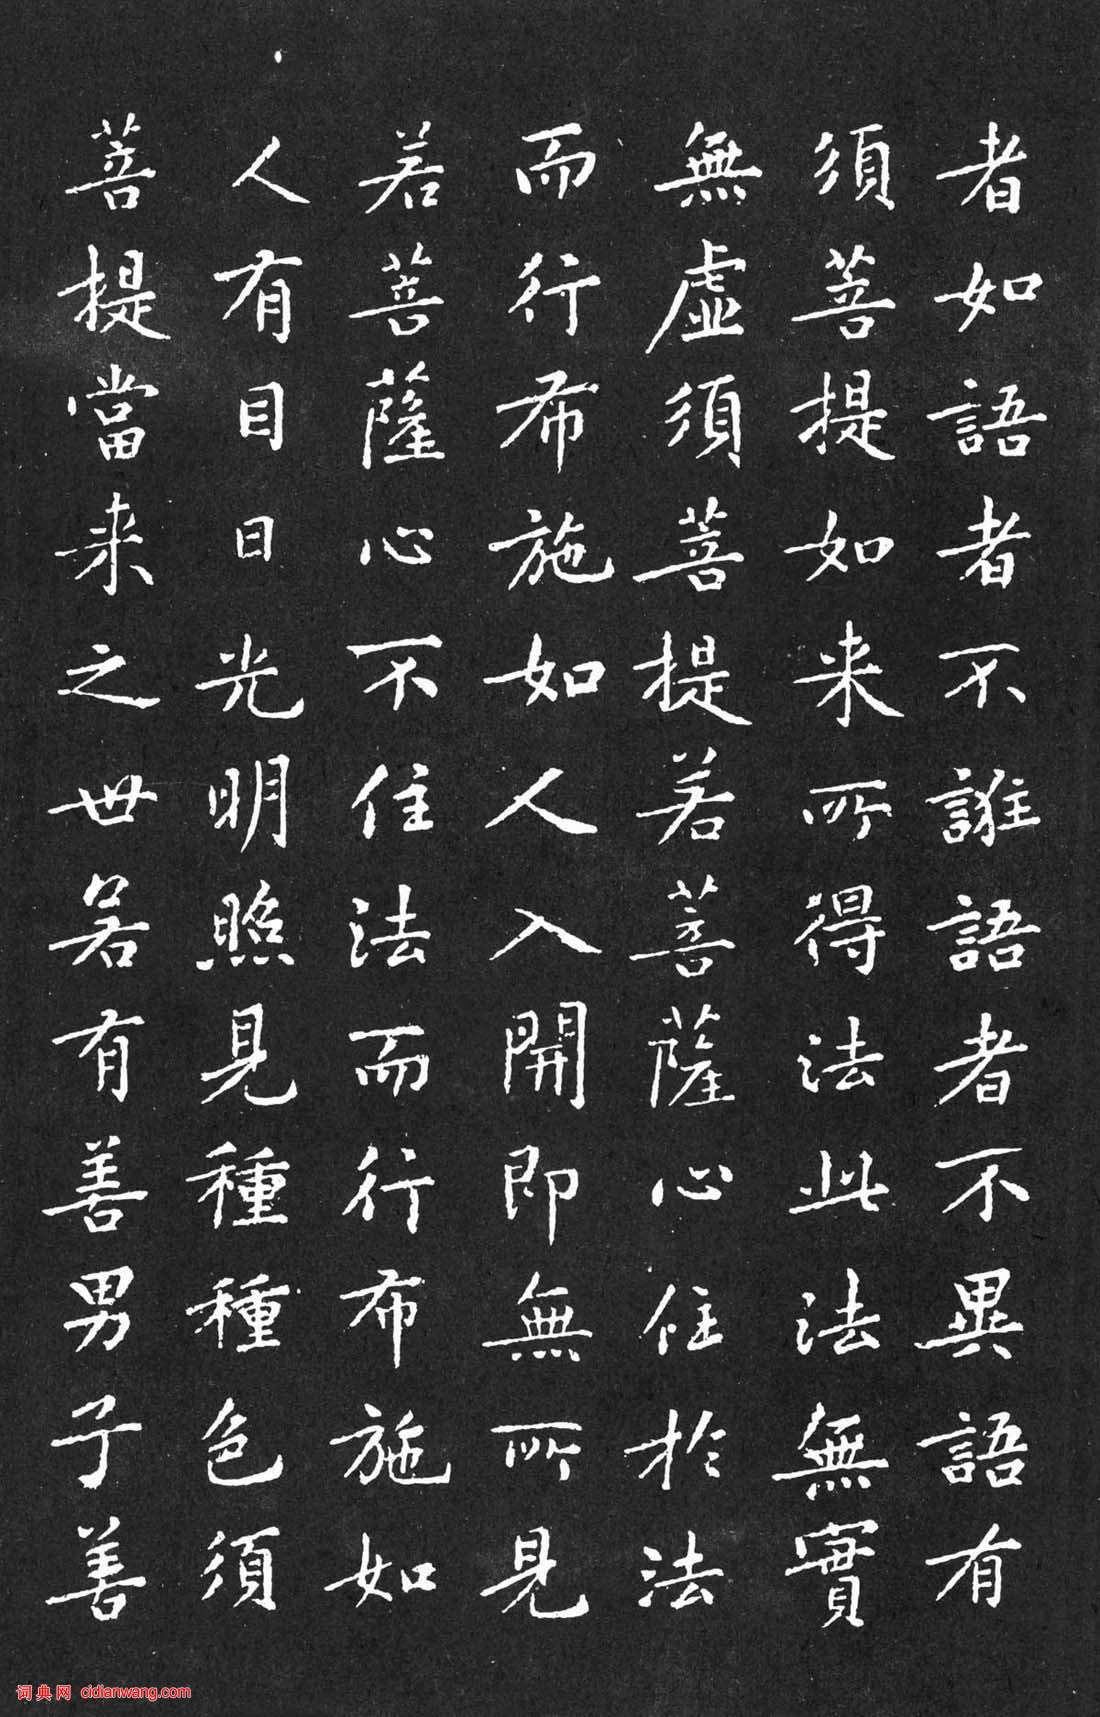 者如語者不誑語者不異語有
須菩提如来所得法此法無實
無虛須菩提若菩薩心住於法
而行布施如人入開即無所見
若菩薩心不住法而行布施如
人有目日光明照見種種色須
菩提當来之世若有善男子善
词典网 cidianwang.com